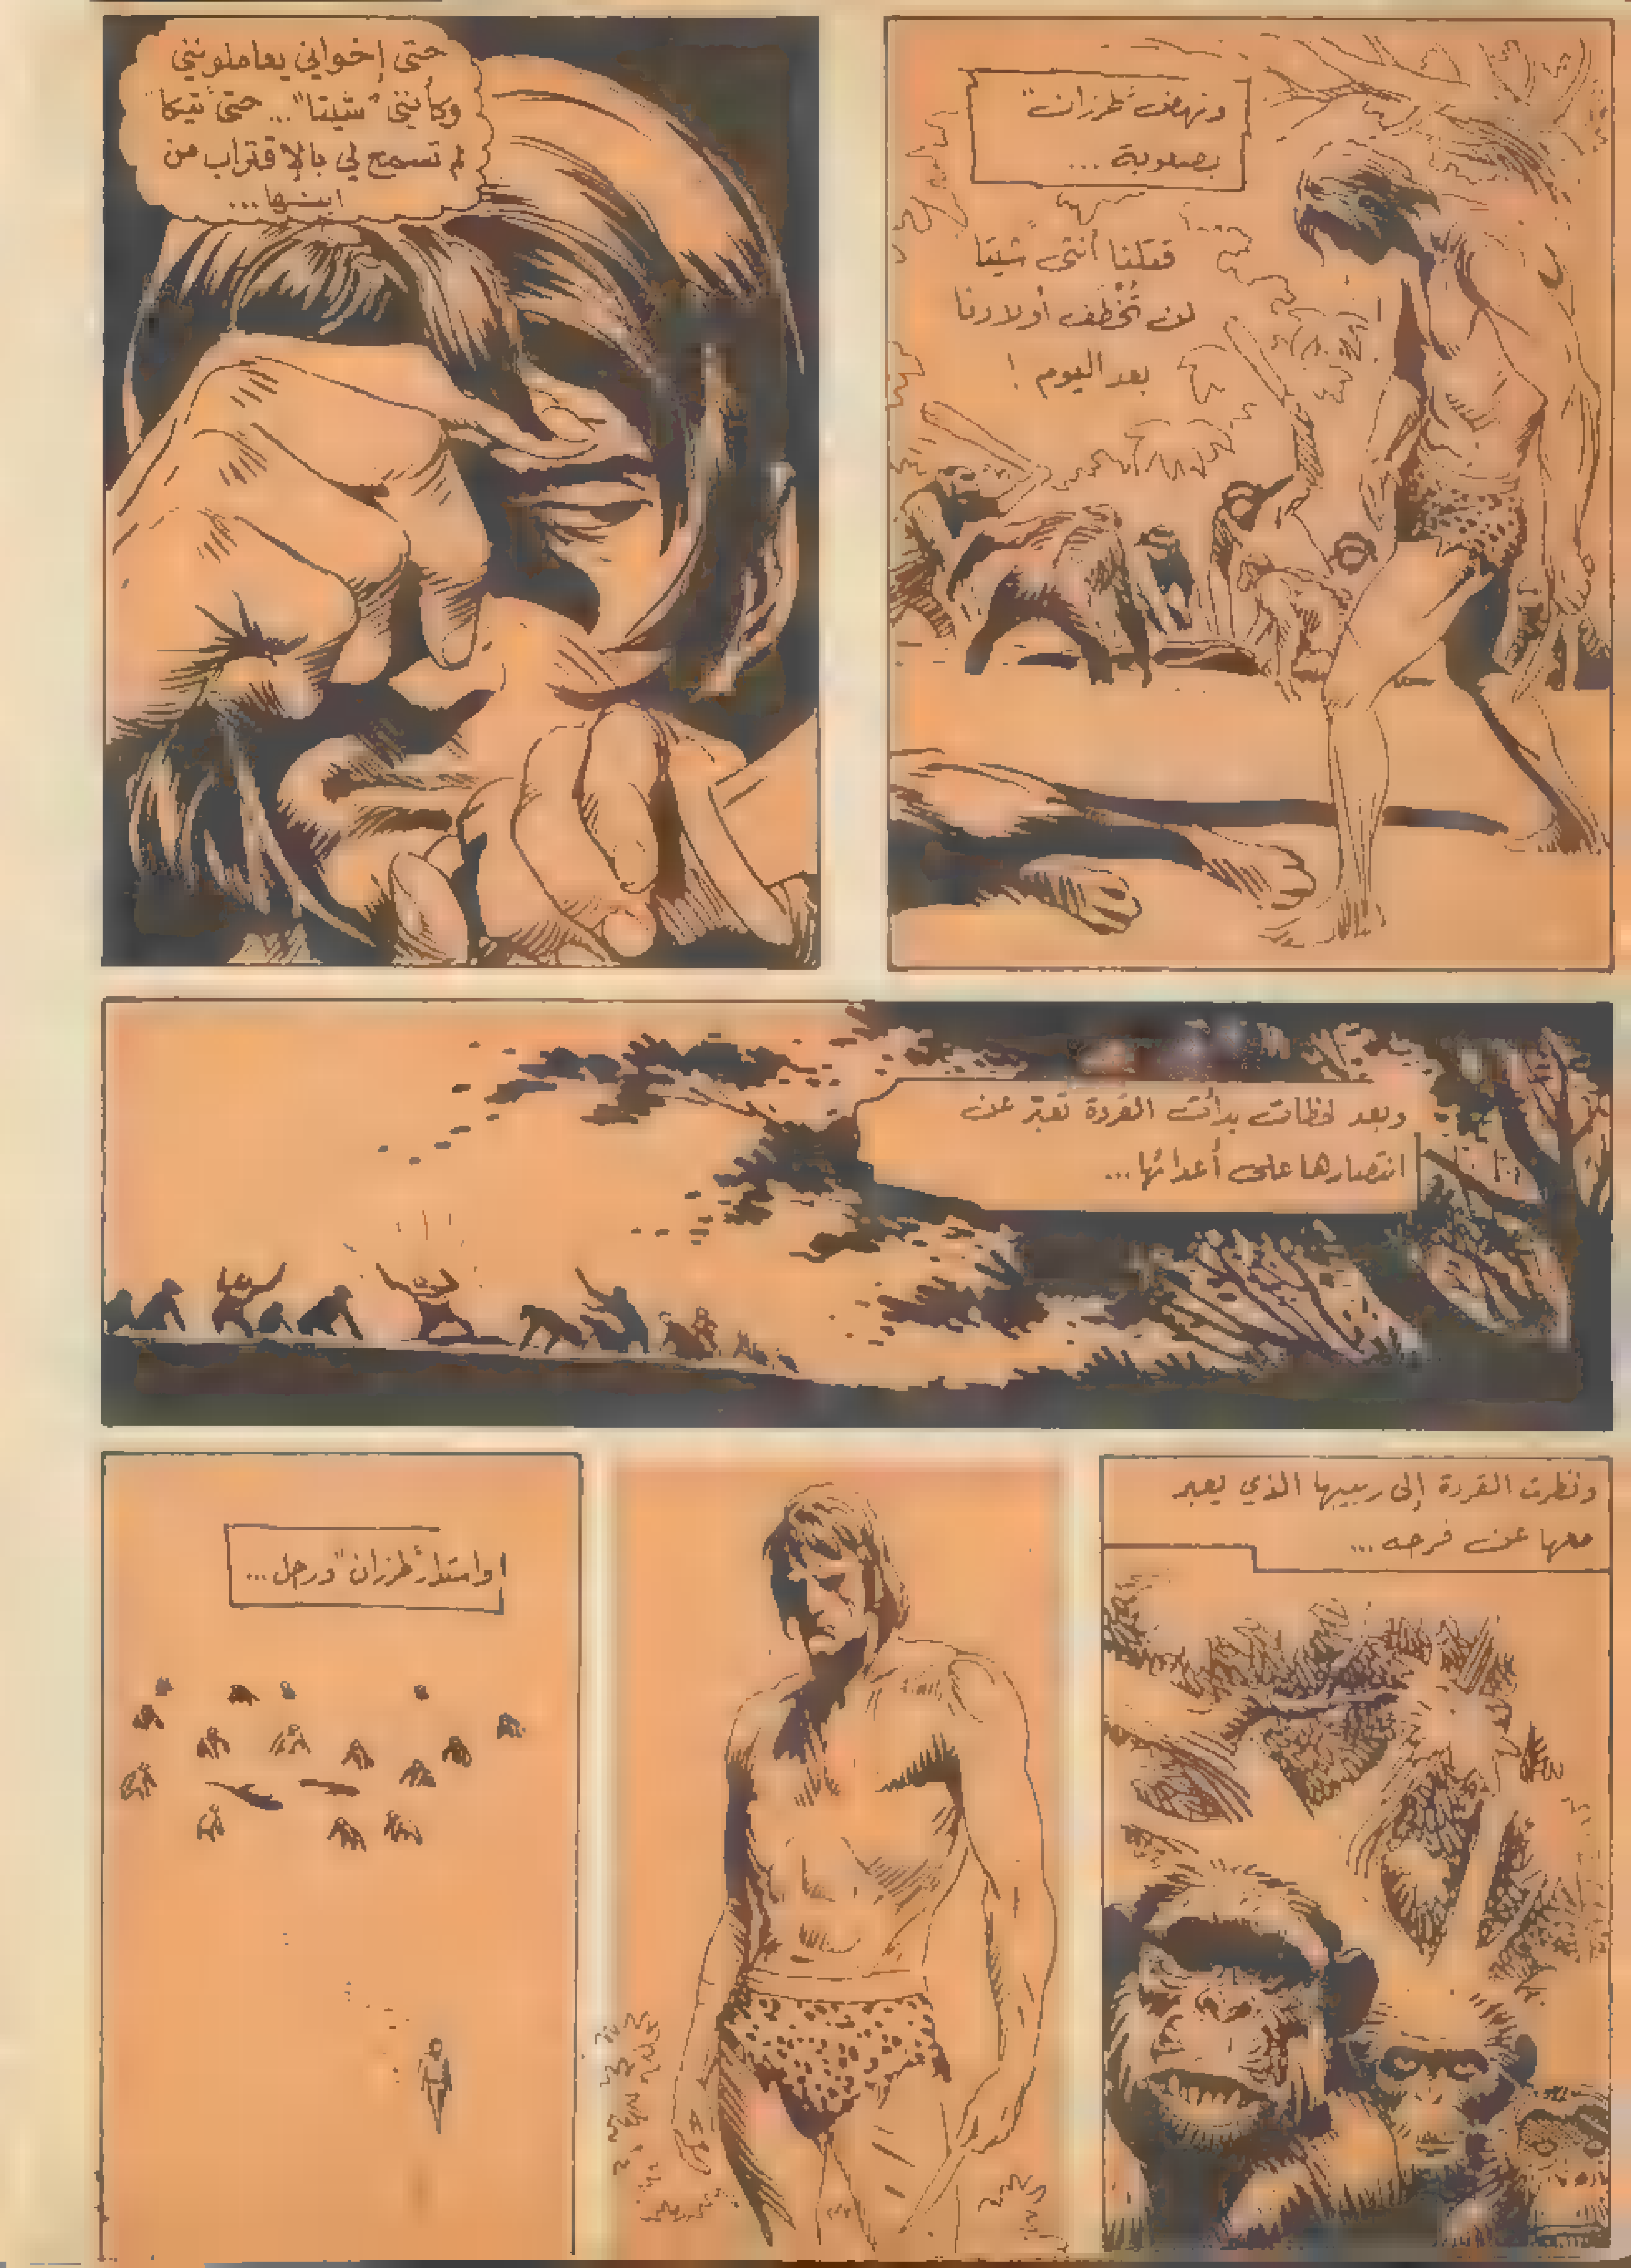 ونهض "طرزان"
بصعوبة ...
قتلنا أنثى "شيتا"
لن تُخطف أولادنا
بعد اليوم !
حتى إخواني يعاملونني
وكأنني "شيتا" ... حتى "تيكا"
لم تسمح لي بالاقتراب من
ابنها ...
وبعد لحظات بدأت القردة تعبّر عن
انتصارها على أعدائها ...
ونظرت القردة إلى ربيبها الذي يعبر
معها عن فرحه ...
واستدار "طرزان" ورحل ...